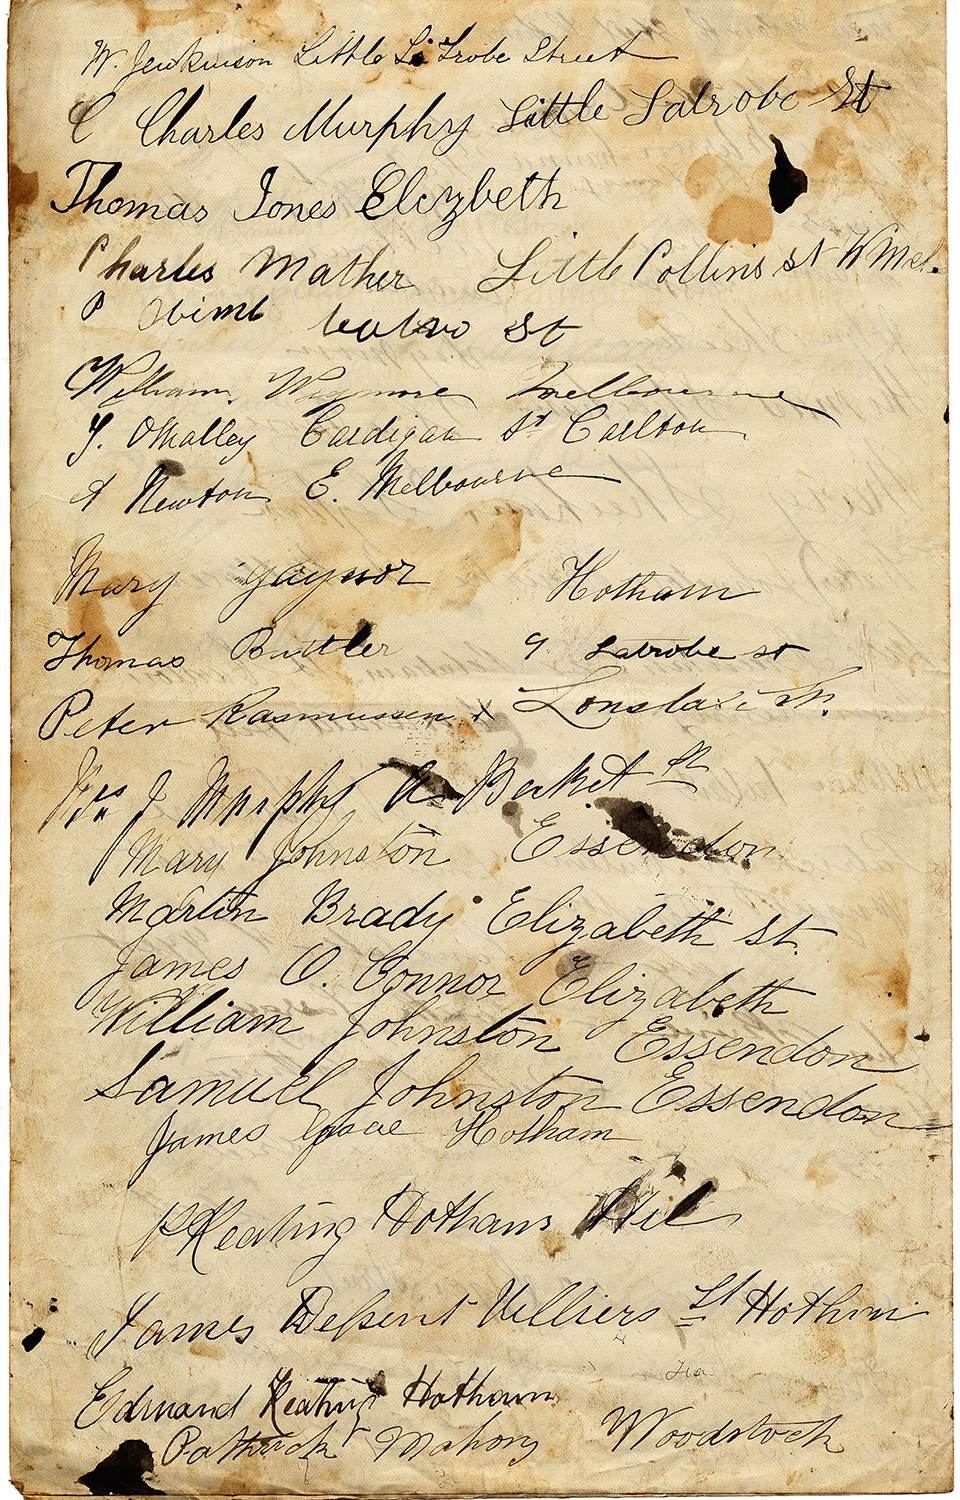 W. Jenkinson Little La Trobe Street
C Charles Murphy Little Latrobe St
Thomas Jones Elizbeth
Charles Mather Little Collins st W Mel.
P St
William Melbourne
J. OMalley Cardigan St Carlton
A Newton E. Melbourne
Mary Gaynor Hotham
Thomas Buttler 9 Latrobe st
Peter Rasmussen x
Mrs J Murphy A Becket St
Mary Johnston Essendon
Martin Brady Elizabeth St.
James O. Connor Elizabeth
William Johnston Essendon
Samuel Johnston Essendon
James Hotham
P Keating Hotham Hil
James Villiers St Hotham
Edmund Keating Hotham
Patrick Mahony Woodstock